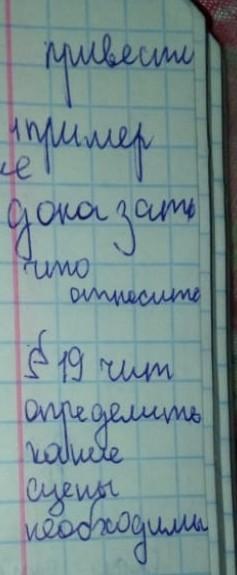 привести
пример
е
доказать
что
относите
§ 19 чит
определить
какие
сцены
необходимы